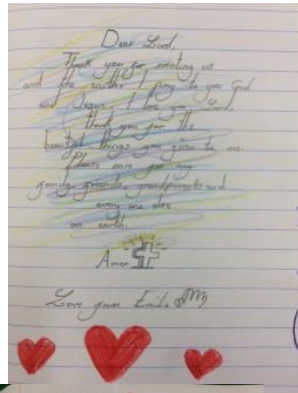 Dear Lord,
Thank you for creating us
and the earth. I pray to you God
and Jesus, I love you Lord,
I thank you for the
beautiful things you given to me.
Please care for my
family, friends, grandparents and
every one else
on earth.
Amen
Love from Emilio